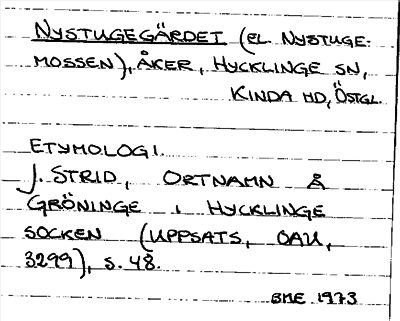 NYSTUGEGÄRDET (EL. NYSTUGE-
MOSSEN), ÅKER, HYCKLINGE SN,
KINDA HD, ÖSTGL.
ETYMOLOGI.
J. STRID, ORTNAMN Å
GRÖNINGE I HYCKLINGE
SOCKEN (UPPSATS, OAU,
3299), S. 48.
BME 1973